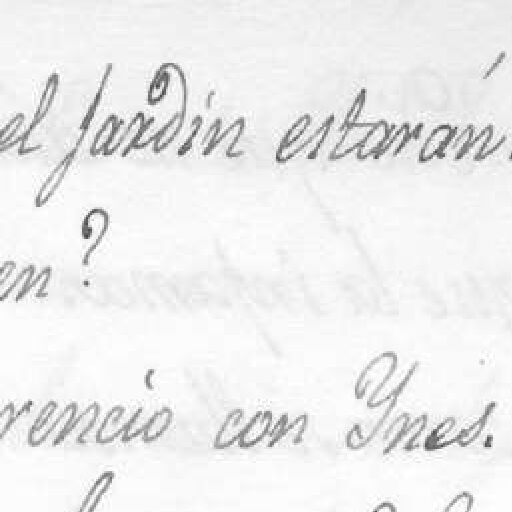 el Jardin estarán.
en?
rencio con Ynes.